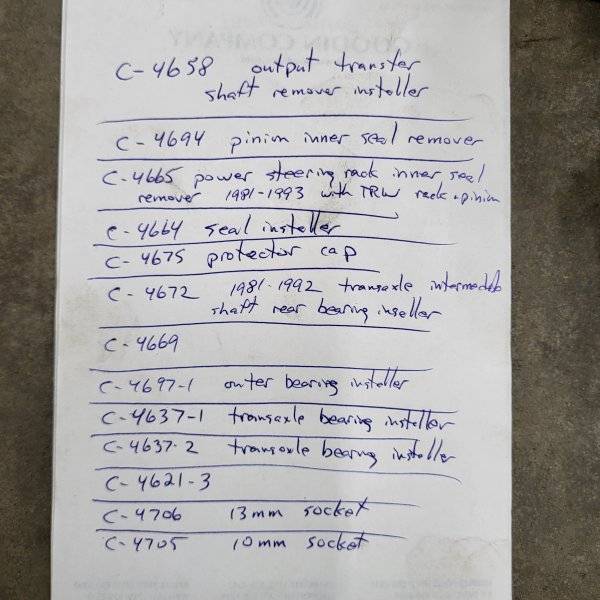 C-4658 output transfer
shaft remover installer
C-4694 pinion inner seal remover
C-4665 power steering rack inner seal
remover 1981-1993 with TRW rack + pinion
C-4664 seal installer
C-4675 protector cap
C-4672 1981-1992 transaxle intermediate
shaft rear bearing installer
C-4669
C-4697-1 outer bearing installer
C-4637-1 transaxle bearing installer
C-4637-2 transaxle bearing installer
C-4621-3
C-4706 13mm socket
C-4705 10mm socket